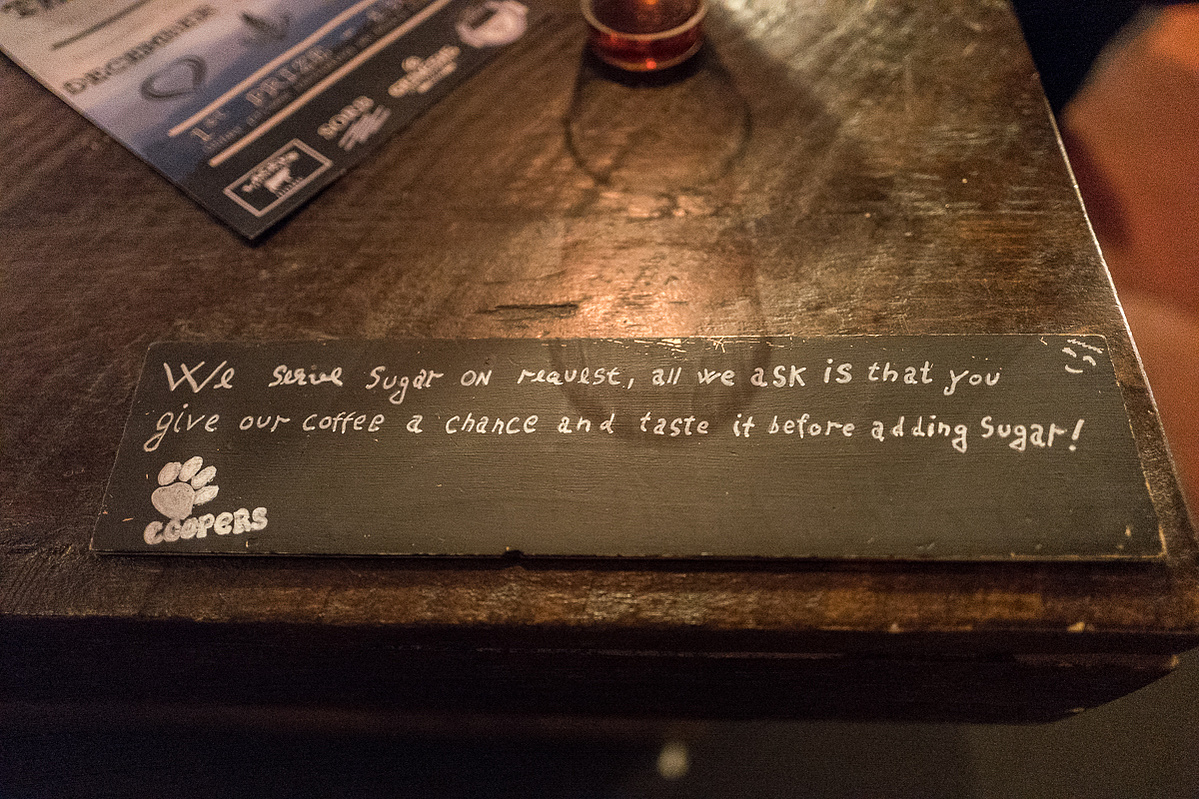 DECEMBER
1st PRIZE
SONS
We serve sugar on request, all we ask is that you
give our coffee a chance and taste it before adding sugar!
COOPERS